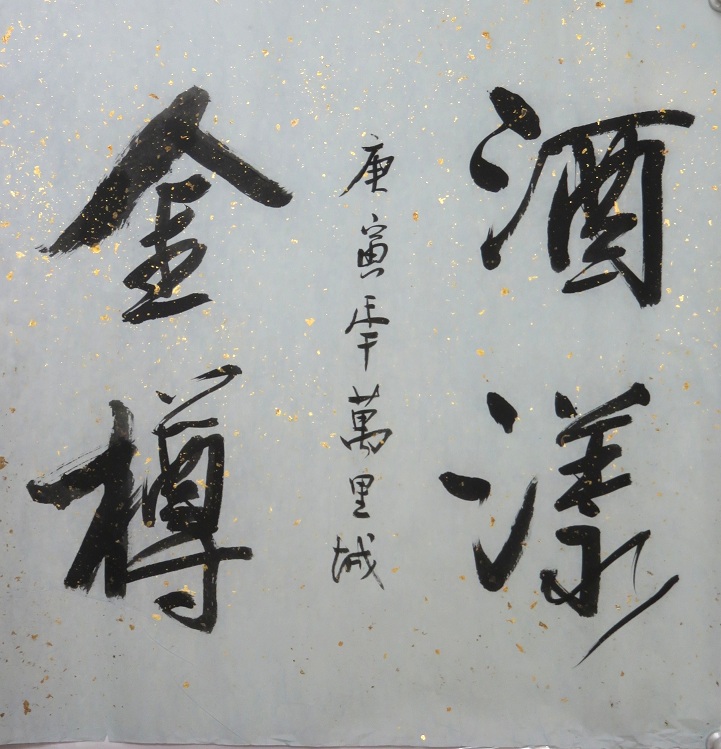 酒漾
金樽
庚寅年萬里城